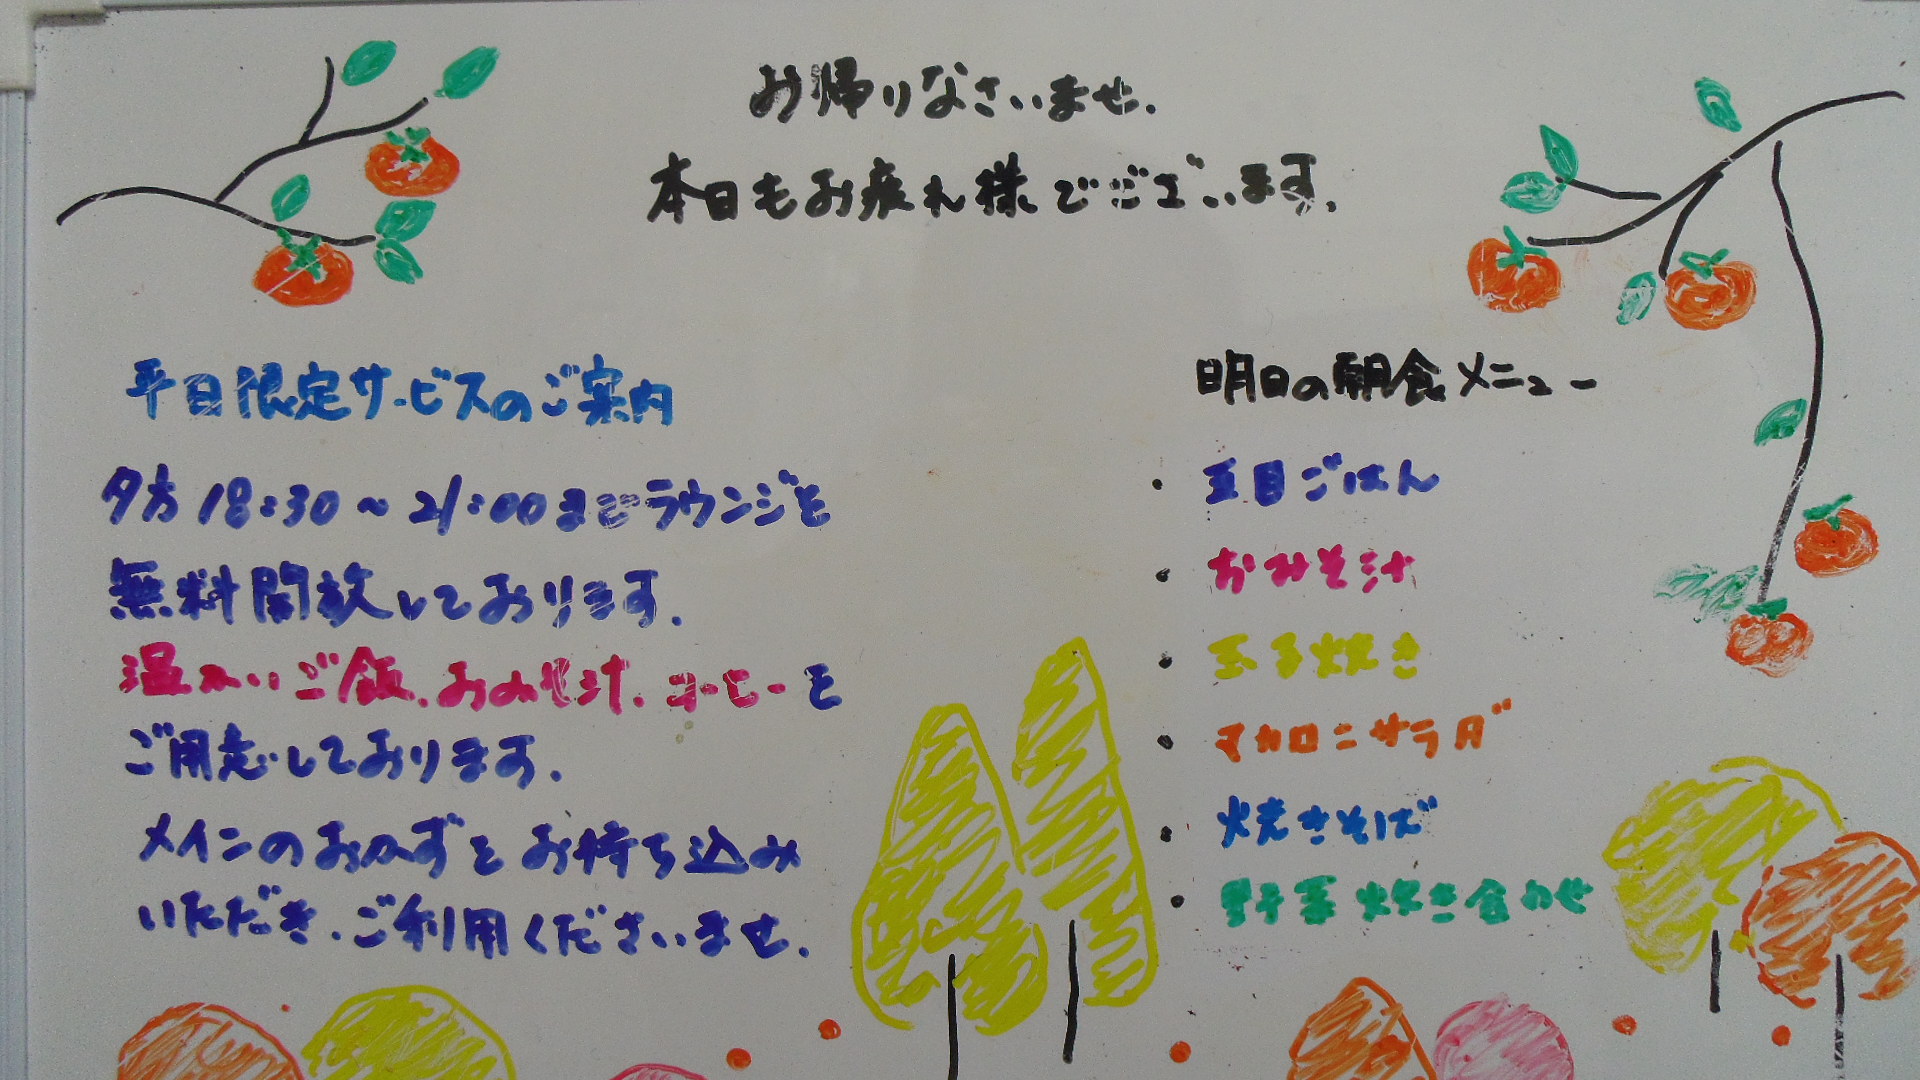 お帰りなさいませ.
本日もお疲れ様でございます.
平日限定サービスのご案内
夕方18:30～21:00までラウンジを
無料開放しております.
温かいご飯.おみそ汁.コーヒーを
ご用意しております.
メインのおかずをお持ち込み
いただき.ご利用くださいませ.
明日の朝食メニュー
・五目ごはん
・おみそ汁
・玉子焼き
・マカロニサラダ
・焼きそば
・野菜炊き合わせ